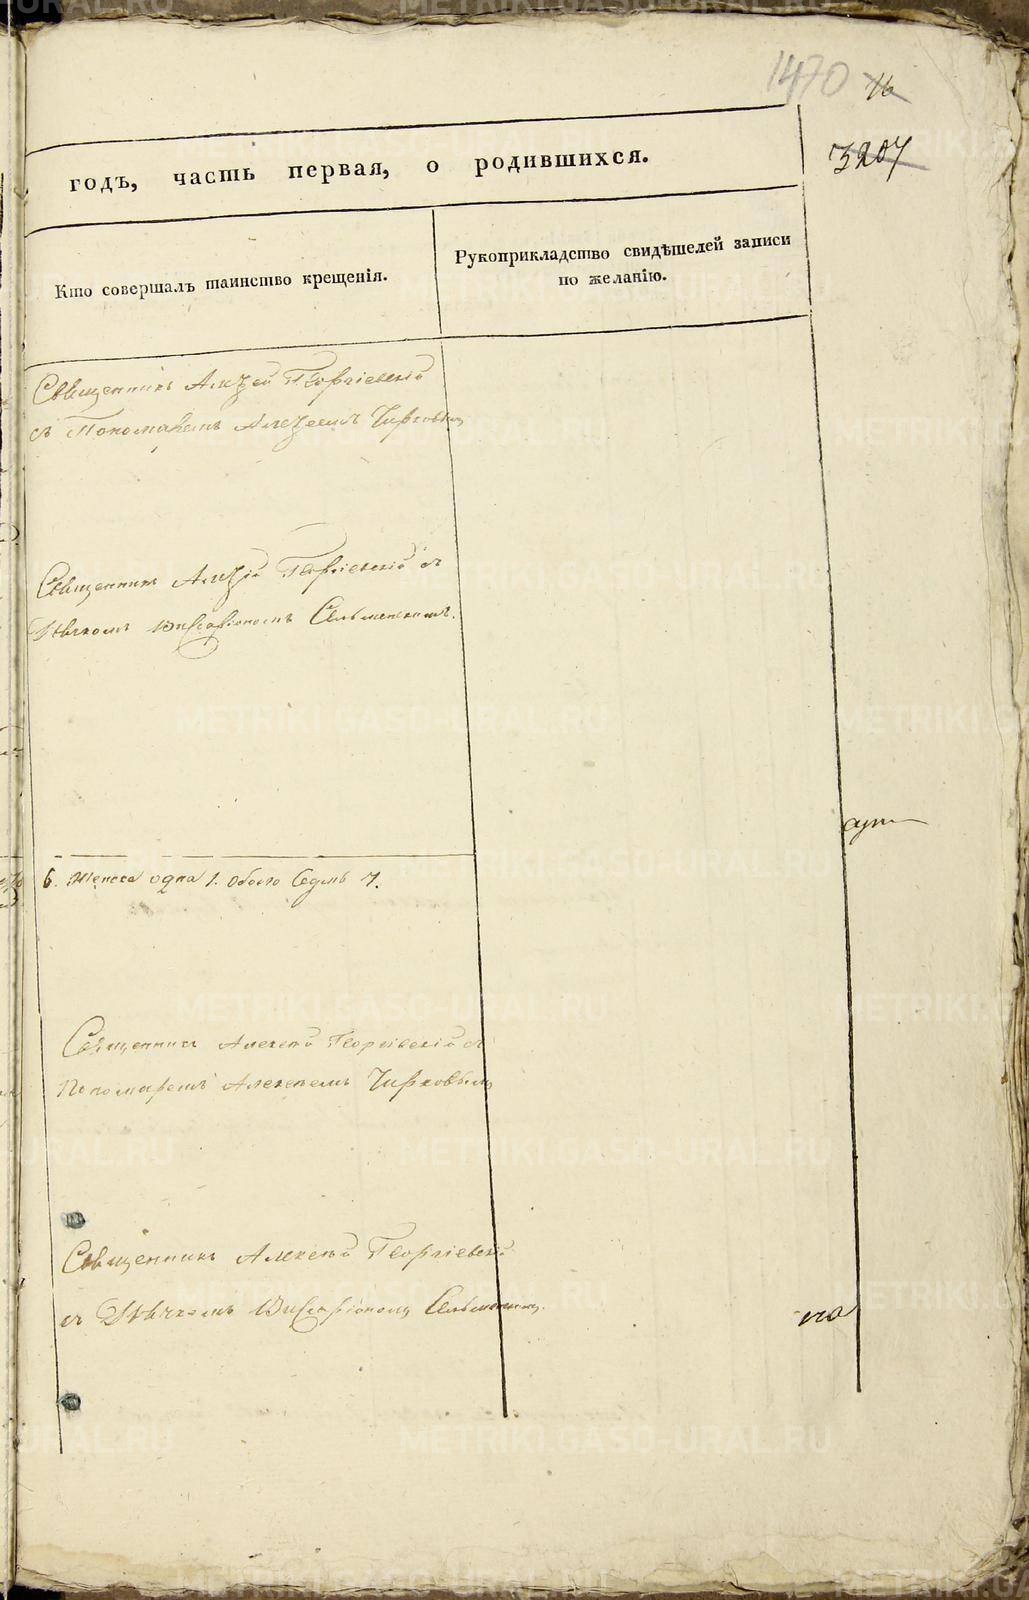 1470 16
3207
годъ, часть первая, о родившихся.
Кто совершалъ таинство крещенія.
Рукоприкладство свидѣтелей записи
по желанію.
Священникъ Алеѯей Георгіевскій
съ Пономаремъ Алеѯеемъ Чирковымъ
Священникъ Алеѯій Георгіевскій съ
Дьячкомъ Виссаріономъ Сельменскимъ.
6. Женска одна 1. обоего Седмь 7.
Священникъ Алексѣй Георгіевскій съ
Пономаремъ Алексѣемъ Чирковымъ
Священникъ Алексѣй Георгіевскій
съ Дьячкомъ Виссаріономъ
METRIKI.GASO-URAL.RU